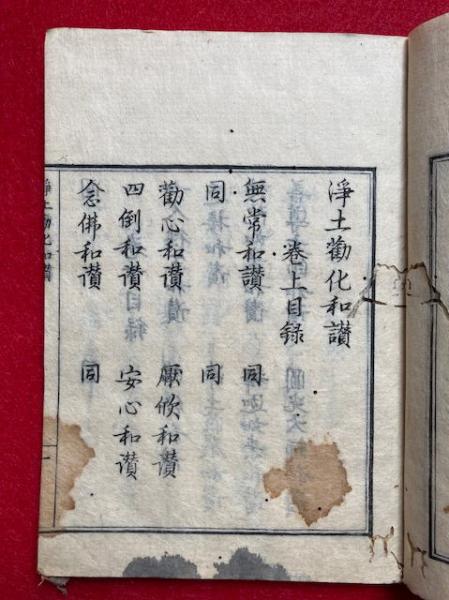 淨土勸化和讃
卷上目録
無常和讃 同
同 同
勸心和讃 厭欣和讃
四倒和讃 安心和讃
念佛和讃 同
淨土勸化和讃